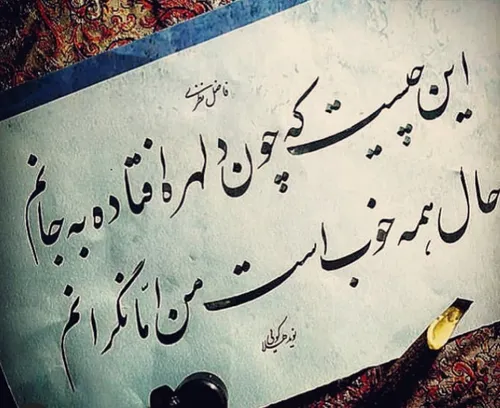 فاضل نظری
این چیست که چون دلهره افتاده به جانم
حال همه خوب است من اما نگرانم